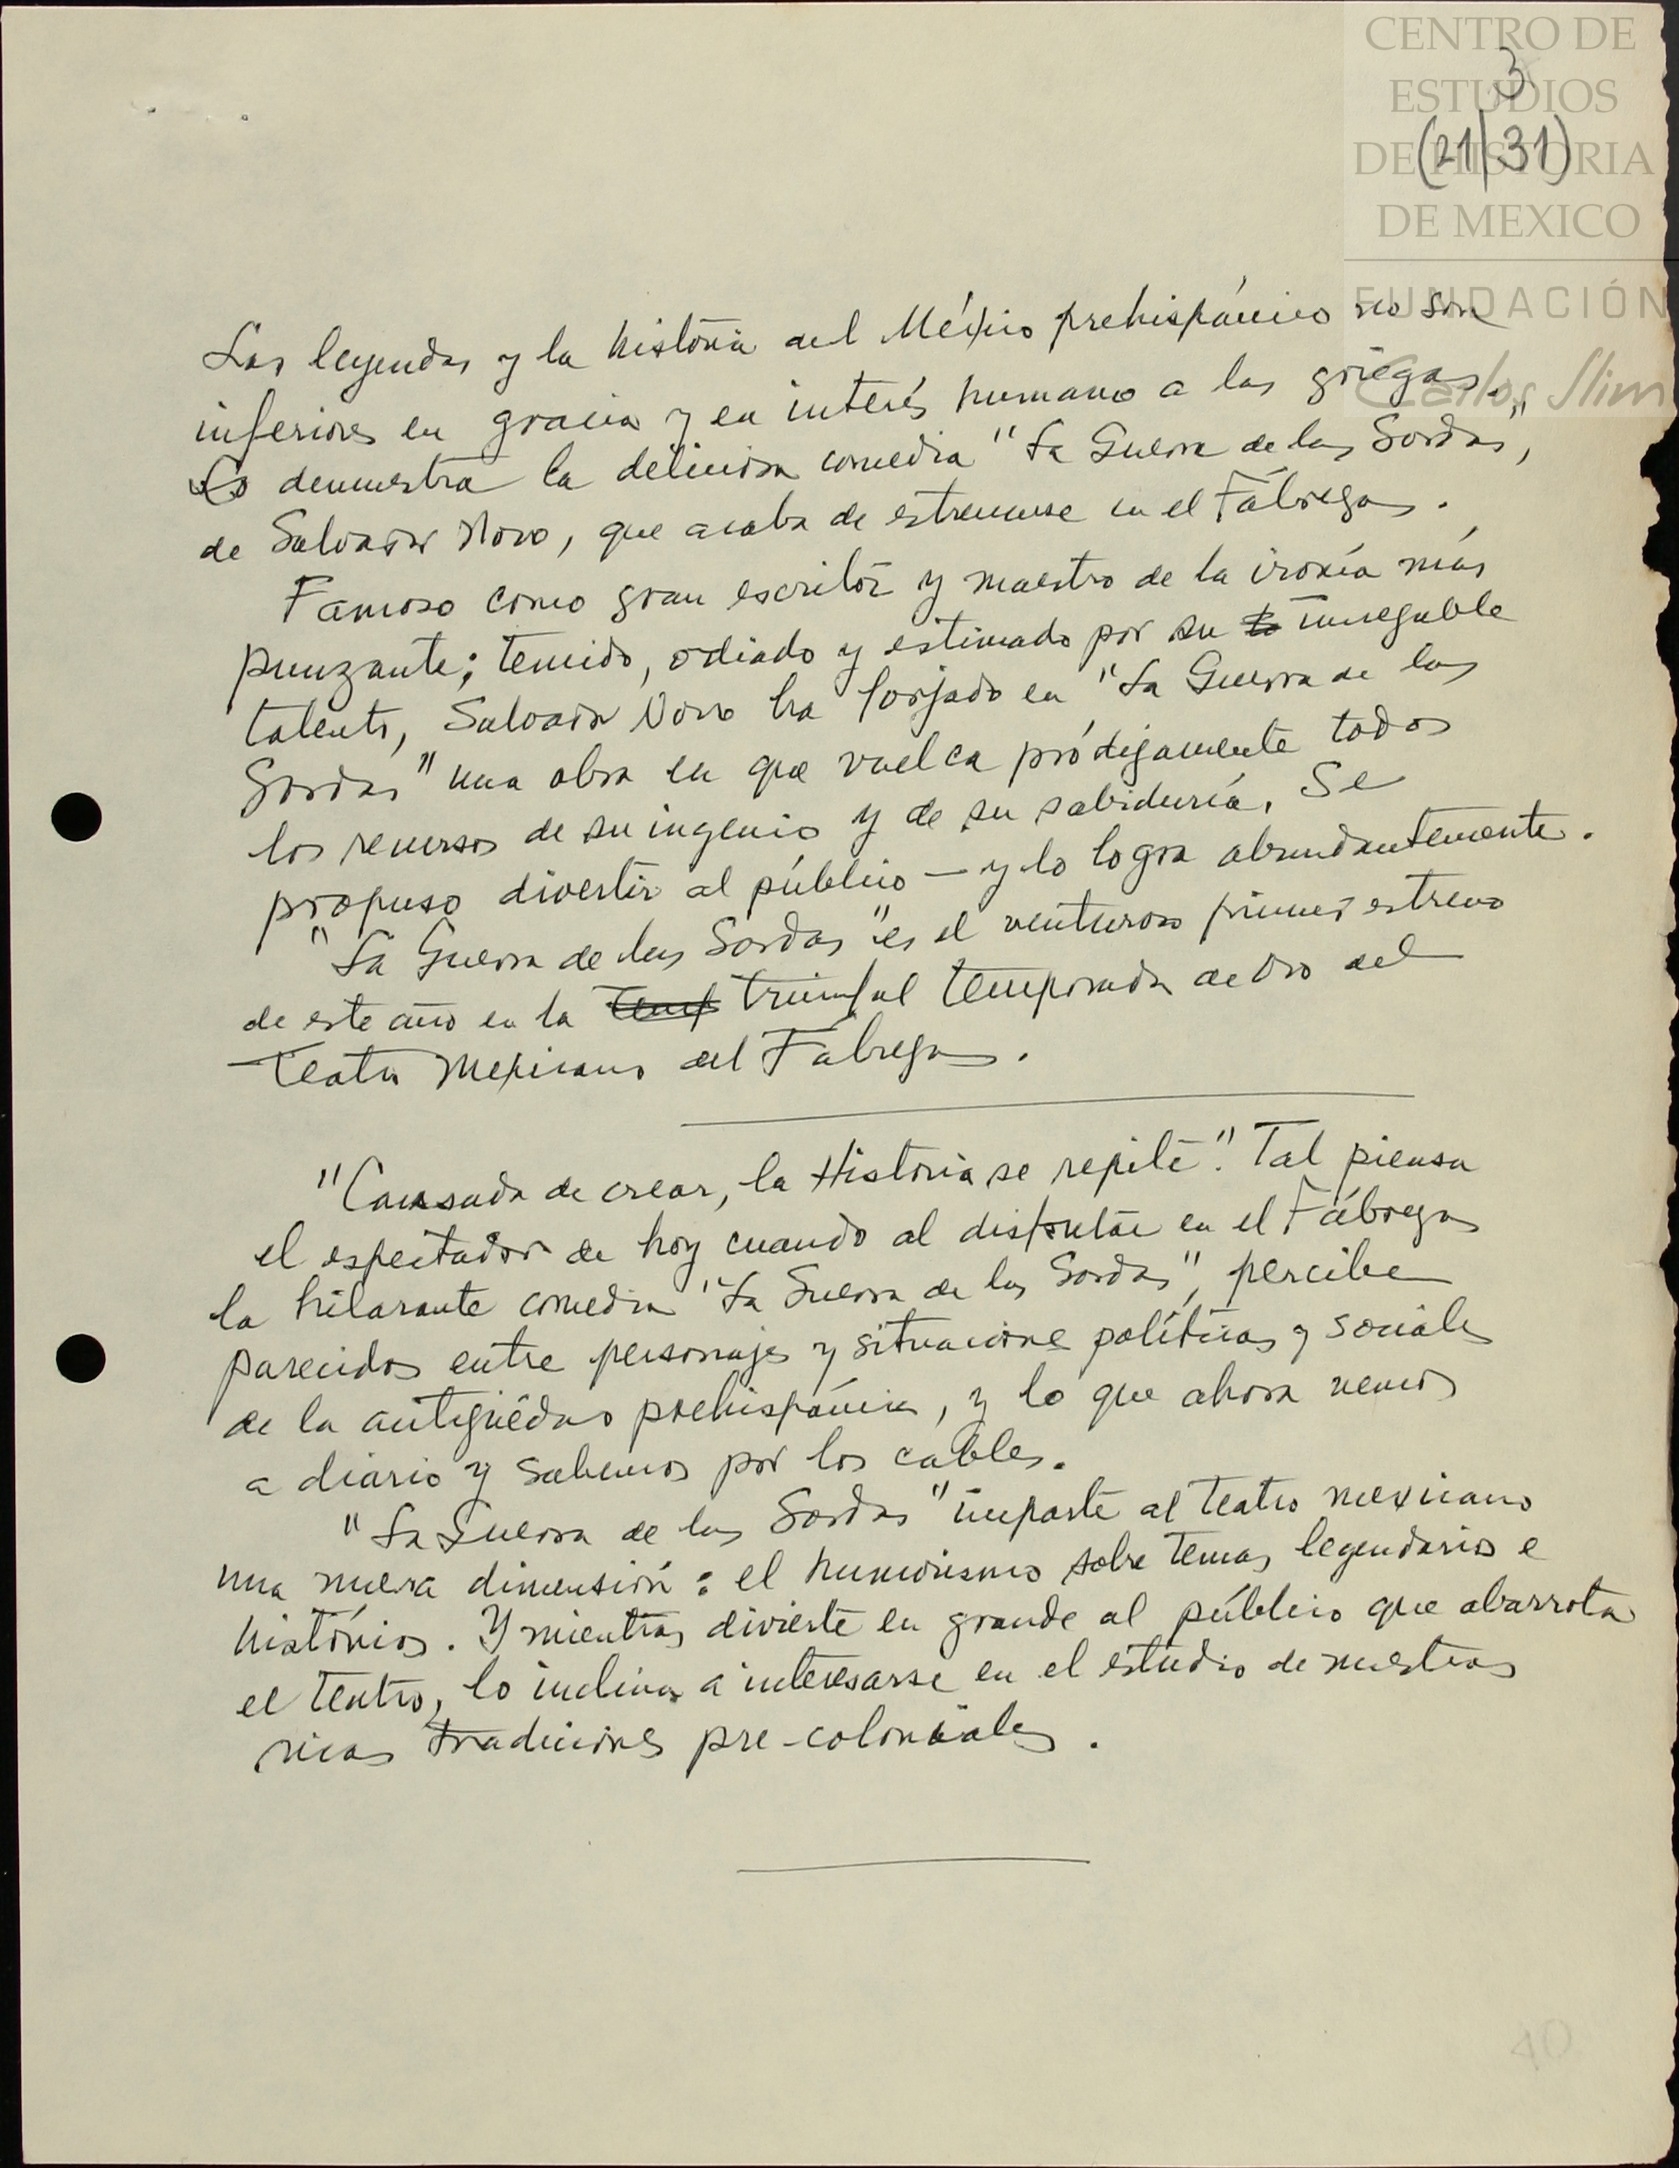 CENTRO DE
ESTUDIOS
DE HISTORIA
DE MEXICO
FUNDACIÓN
Carlos Slim
3
(21/31)
Las leyendas y la historia del México prehispánico no son
inferiores en gracia y en interés humano a las griegas.
Lo demuestra la deliciosa comedia "La Guerra de las Gordas",
de Salvador Novo, que acaba de estrenarse en el Fábregas.
Famoso como gran escritor y maestro de la ironía más
punzante; temido, odiado y estimado por su innegable
talento, Salvador Novo ha forjado en "La Guerra de las
Gordas" una obra en que vuelca pródigamente todos
los recursos de su ingenio y de su sabiduría. Se
propuso divertir al público — y lo logra abundantemente.
"La Guerra de las Gordas" es el venturoso primer estreno
de este año en la Temp triunfal temporada de oro del
Teatro Mexicano del Fábregas.
"Cansada de crear, la Historia se repite". Tal piensa
el espectador de hoy cuando al disfrutar en el Fábregas
la hilarante comedia "La Guerra de las Gordas", percibe
parecidos entre personajes y situaciones políticas y sociales
de la antigüedad prehispánica, y lo que ahora vemos
a diario y sabemos por los cables.
"La Guerra de las Gordas" imparte al teatro mexicano
una nueva dimensión: el humorismo sobre temas legendarios e
históricos. Y mientras divierte en grande al público que abarrota
el teatro, lo inclina a interesarse en el estudio de nuestras
ricas tradiciones pre-coloniales.
40